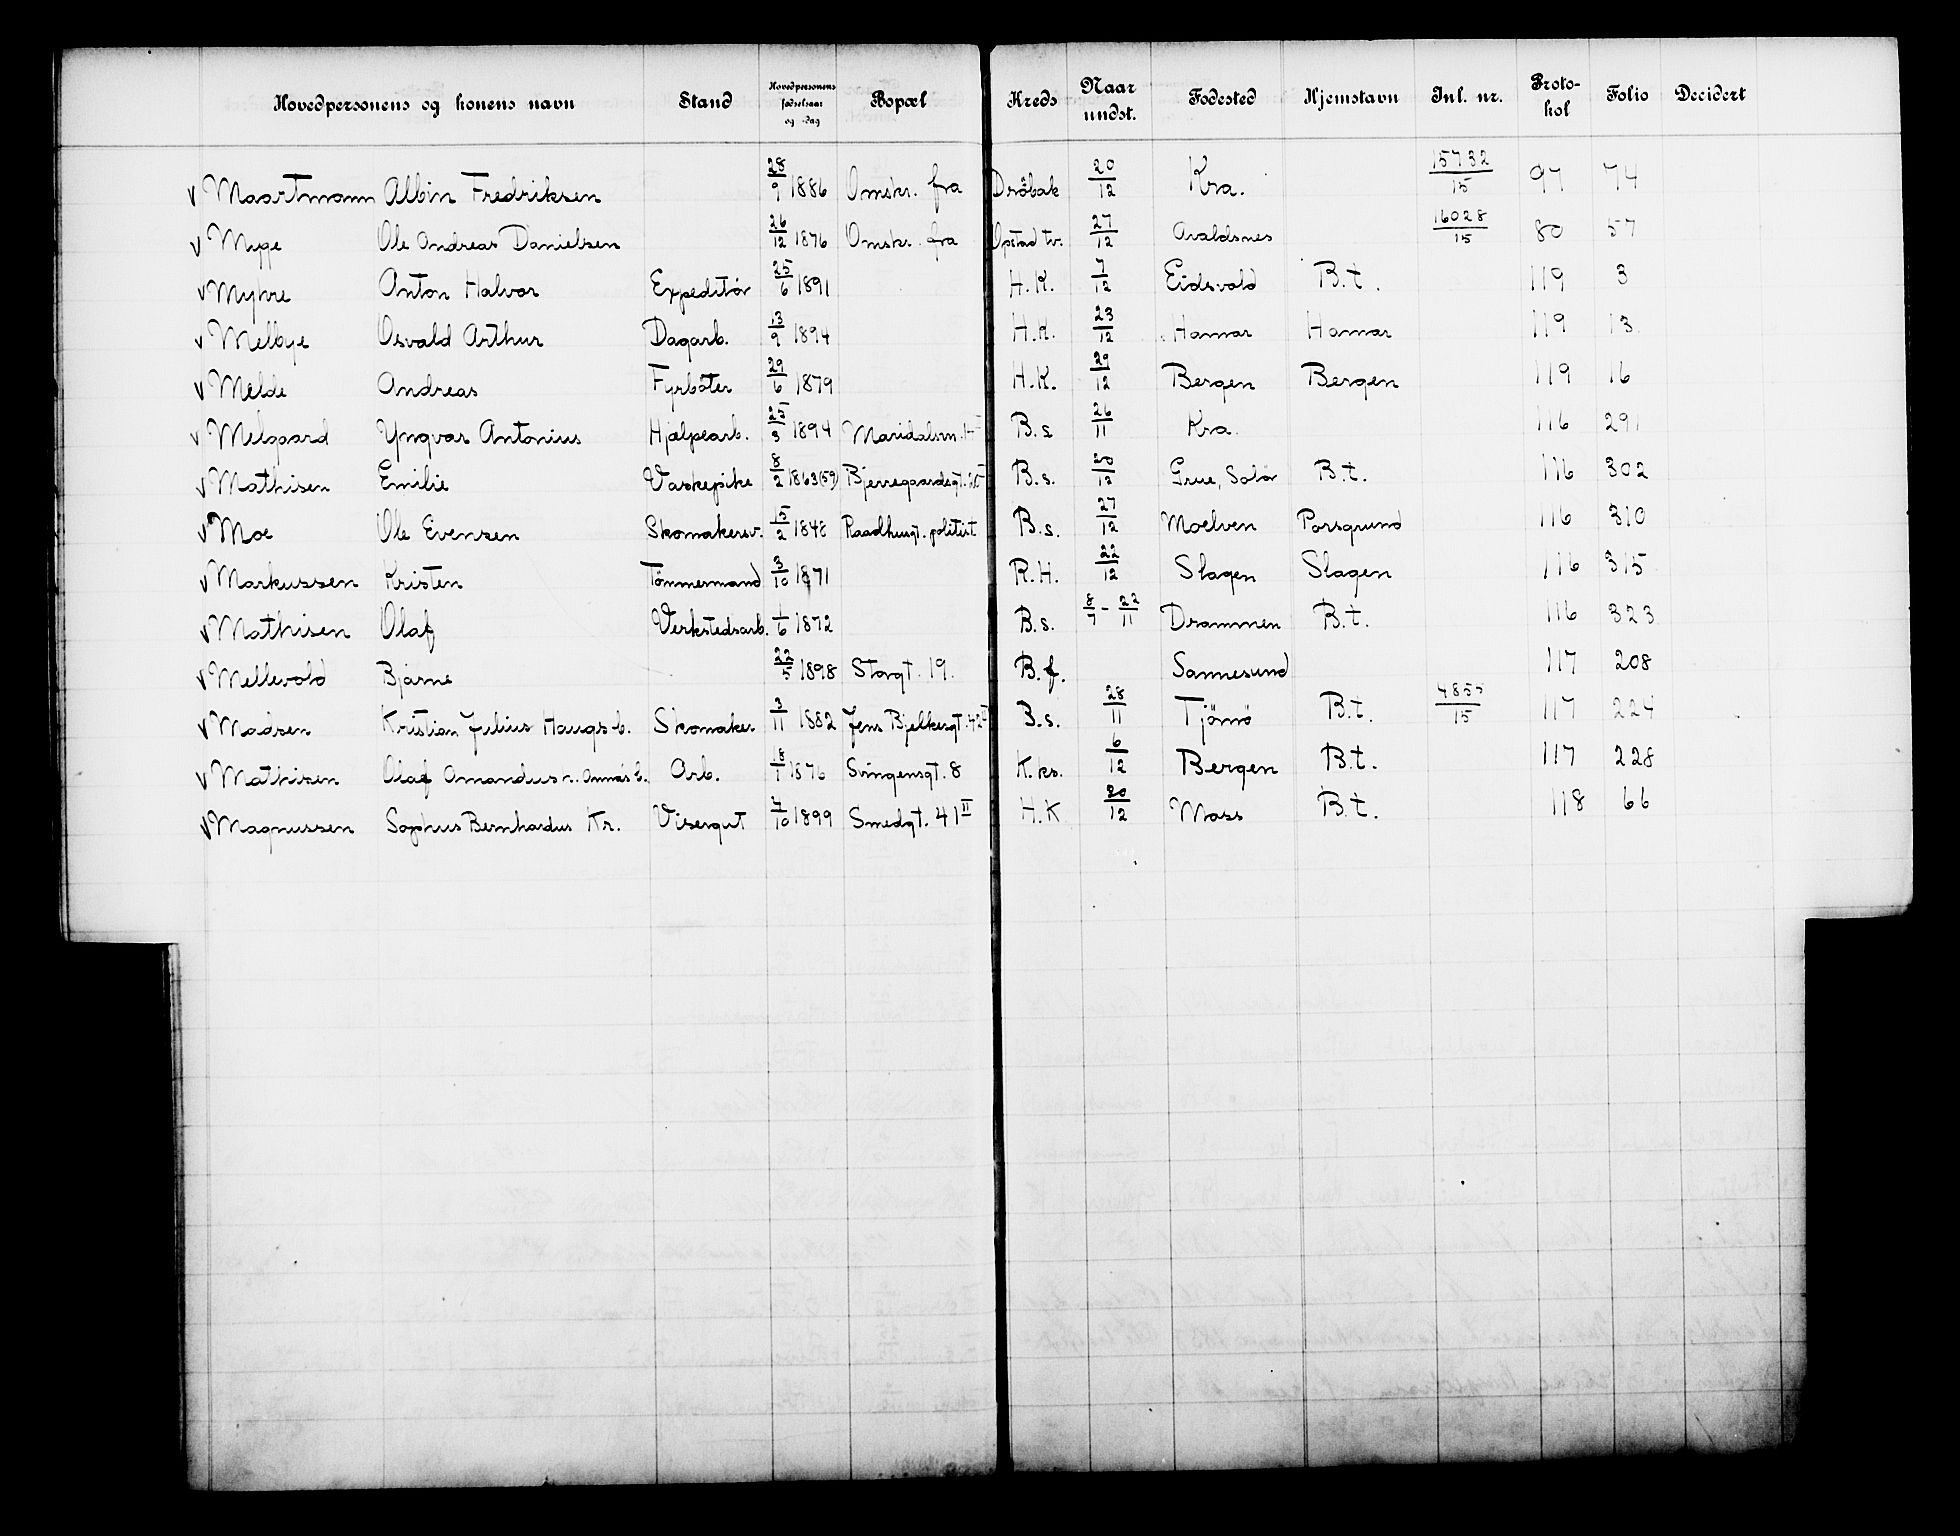 Hovedpersonens og konens navn Stand Hovedpersonens fødselsaar og -dag Bopæl Kreds Naar undst. Fødested Hjemstavn Jnl. nr. Protokol Folio Decidert
v Maartmann Albin Fredriksen 28/9 1886 Omskr. fra Drøbak 20/12 Kra. 15732/15 97 74
v Mygge Ole Andreas Danielsen 26/12 1876 Omskr. fra Opstad tv. 27/12 Avaldsnes 16028/15 80 57
v Myhre Anton Halvor Expeditør 25/6 1891 H.K. 7/12 Eidsvold B.t. 119 3
v Melbye Osvald Arthur Dagarb. 13/9 1894 H.K. 23/12 Hamar Hamar 119 13
v Melde Andreas Fyrbøter 29/6 1879 H.K. 29/12 Bergen Bergen 119 16
v Melgaard Yngvar Antonius Hjælpearb. 25/3 1894 Maridalsvn. B.s 26/11 Kra. 116 291
v Mathisen Emilie Vaskepike 8/2 1863(59) Bjerregaardsgt. B.s. 20/12 Grue, Solør B.t. 116 302
v Moe Ole Evensen Skomakersv. 15/2 1848 Raadhusgt. politist B.s. 27/12 Moelven Porsgrund 116 310
v Markussen Kristen Tømmermand 3/10 1871 R.H. 22/12 Slagen Slagen 116 315
v Mathisen Olaf Verkstedsarb. 1/6 1872 B.s. 8/7 - 22/11 Drammen B.t. 116 323
v Mellevold Bjarne 22/5 1898 Storgt. 19. B.f. Sannesund 117 208
v Madsen Kristian Julius Haugs b. Skomaker 3/11 1882 Jens Bjelkesgt. 42 II B.s. 28/11 Tjømø B.t. 4855/15 117 224
v Mathisen Olaf Amandus n. Annas b. Arb. 18/1 1876 Svingensgt. 8 K.ks. 6/12 Bergen B.t. 117 228
v Magnussen Sophus Bernhardus Kr. Visergut 7/10 1899 Smedgt. 41 II H.K 20/12 Moss B.t. 118 66